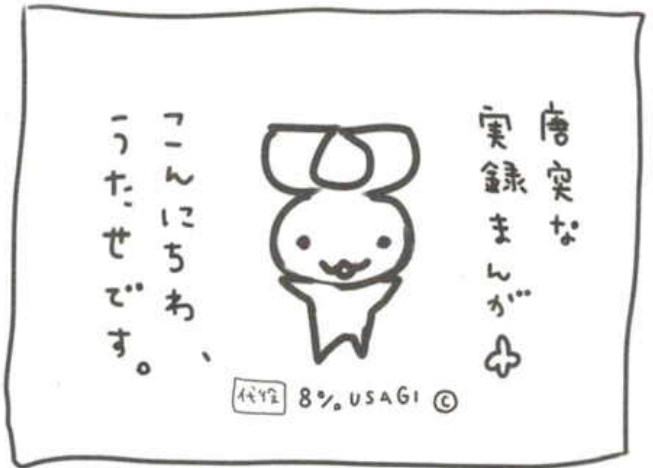 唐突な
実録まんが
こんにちわ、
うたせです。
代絵 8%USAGI ©